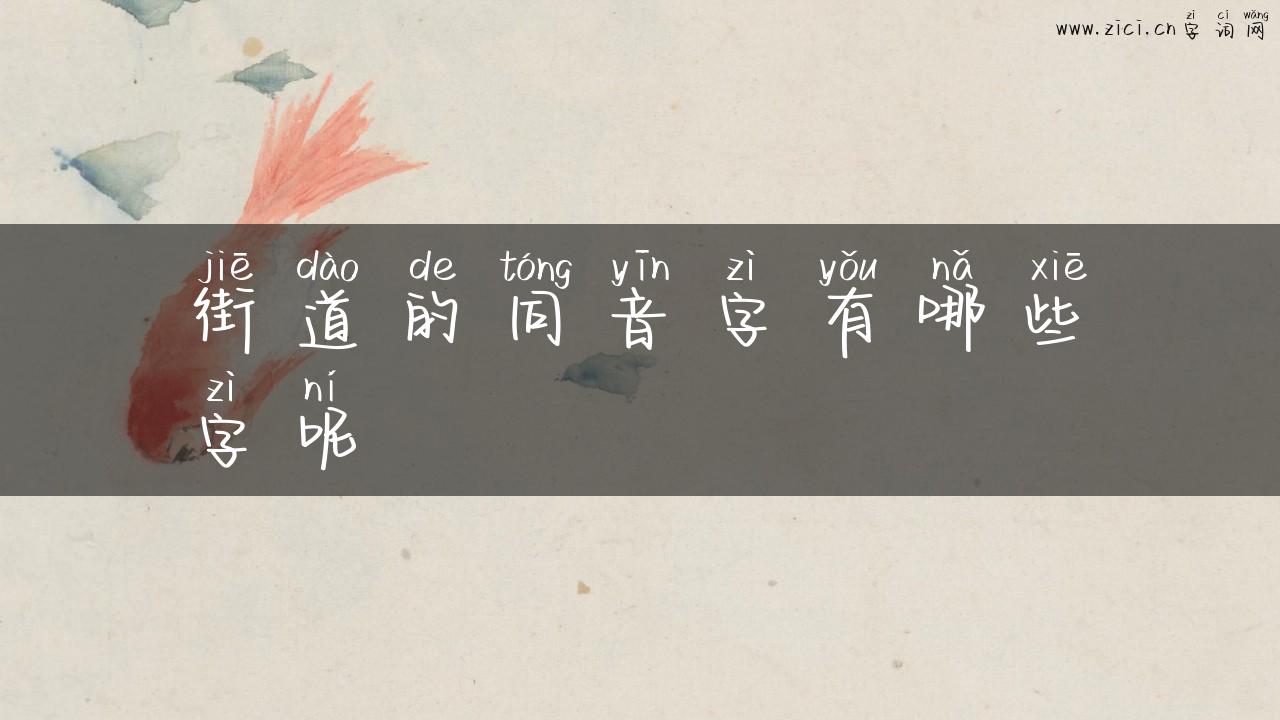 www.zici.cn 字词网
zì cí wǎng
jiē dào de tóng yīn zì yǒu nǎ xiē
街道的同音字有哪些
zì ní
字呢